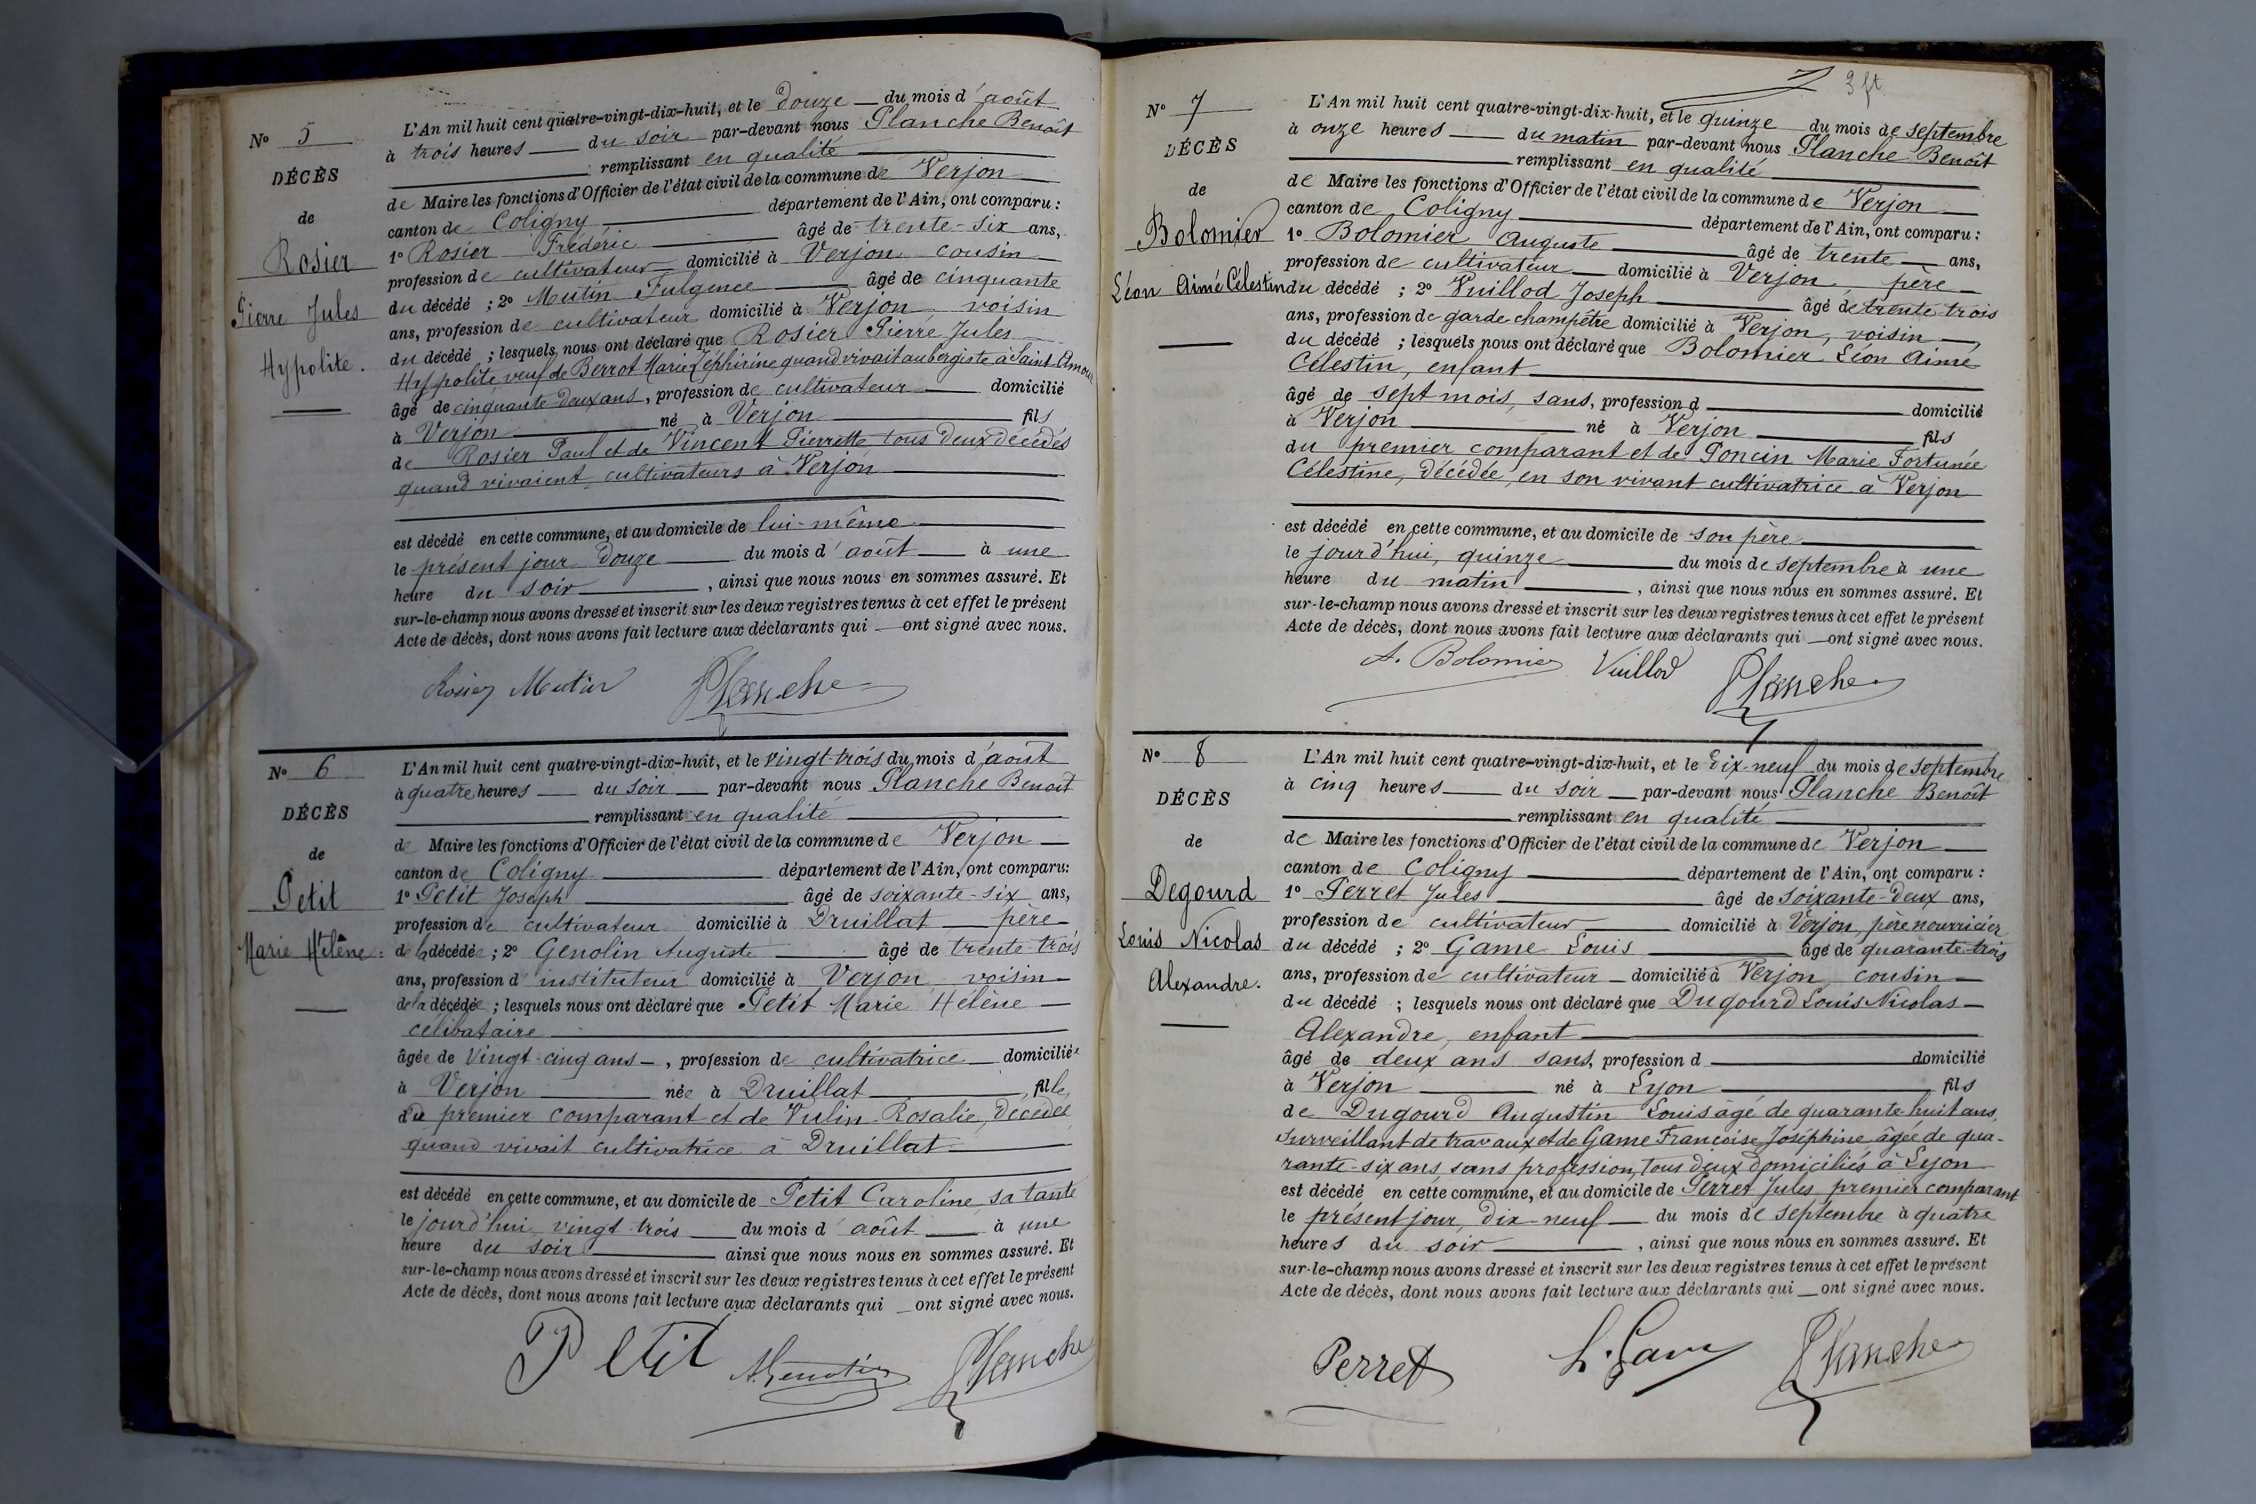 N° 5
DÉCÈS
de
Rosier
Pierre Jules
Hypolite.
L'An mil huit cent quatre-vingt-dix-huit, et le douze du mois d'août
à trois heures du soir par-devant nous Planche Benoît
remplissant en qualité
de Maire les fonctions d'Officier de l'état civil de la commune de Verjon
canton de Coligny département de l'Ain, ont comparu :
1° Rosier Frédéric âgé de trente-six ans,
profession de cultivateur domicilié à Verjon cousin
du décédé ; 2° Mutin Fulgence âgé de cinquante
ans, profession de cultivateur domicilié à Verjon voisin
du décédé ; lesquels nous ont déclaré que Rosier Pierre Jules
Hyppolite veuf de Berrot Marie Zéphirine quand vivait aubergiste à Saint-Amour
âgé de cinquante deux ans, profession de cultivateur domicilié
à Verjon né à Verjon fils
de Rosier Paul et de Vincent Pierrette tous deux décédés
quand vivaient cultivateurs à Verjon
est décédé en cette commune, et au domicile de lui-même
le présent jour douze du mois d'août à une
heure du soir, ainsi que nous nous en sommes assuré. Et
sur-le-champ nous avons dressé et inscrit sur les deux registres tenus à cet effet le présent
Acte de décès, dont nous avons fait lecture aux déclarants qui ont signé avec nous.
Rosier Mutin Planche
N° 6
DÉCÈS
de
Petit
Marie Hélène.
L'An mil huit cent quatre-vingt-dix-huit, et le vingt-trois du mois d'août
à quatre heures du soir par-devant nous Planche Benoît
remplissant en qualité
de Maire les fonctions d'Officier de l'état civil de la commune de Verjon
canton de Coligny département de l'Ain, ont comparu:
1° Petit Joseph âgé de soixante-six ans,
profession de cultivateur domicilié à Druillat père
de la décédée ; 2° Genolin Auguste âgé de trente-trois
ans, profession d'instituteur domicilié à Verjon voisin
de la décédée ; lesquels nous ont déclaré que Petit Marie Hélène
célibataire
âgée de vingt-cinq ans, profession de cultivatrice domiciliée
à Verjon née à Druillat fille
du premier comparant et de Vulin Rosalie, décédée
quand vivait cultivatrice à Druillat
est décédé en cette commune, et au domicile de Petit Caroline, sa tante
le jourd'hui vingt-trois du mois d'août à une
heure du soir ainsi que nous nous en sommes assuré. Et
sur-le-champ nous avons dressé et inscrit sur les deux registres tenus à cet effet le présent
Acte de décès, dont nous avons fait lecture aux déclarants qui ont signé avec nous.
Petit A. Genolin Planche
N° 7
DÉCÈS
de
Bolomier
Léon Aimé Célestin
L'An mil huit cent quatre-vingt-dix-huit, et le quinze du mois de septembre
à onze heures du matin par-devant nous Planche Benoît
remplissant en qualité
de Maire les fonctions d'Officier de l'état civil de la commune de Verjon
canton de Coligny département de l'Ain, ont comparu :
1° Bolomier Auguste âgé de trente ans,
profession de cultivateur domicilié à Verjon père
du décédé ; 2° Vuillod Joseph âgé de trente-trois
ans, profession de garde champêtre domicilié à Verjon, voisin
du décédé ; lesquels nous ont déclaré que Bolomier Léon Aimé
Célestin, enfant
âgé de sept mois, sans, profession d domicilié
à Verjon né à Verjon fils
du premier comparant et de Poncin Marie Fortunée
Célestine, décédée, en son vivant cultivatrice à Verjon
est décédé en cette commune, et au domicile de son père
le jourd'hui, quinze du mois de septembre à une
heure du matin, ainsi que nous nous en sommes assuré. Et
sur-le-champ nous avons dressé et inscrit sur les deux registres tenus à cet effet le présent
Acte de décès, dont nous avons fait lecture aux déclarants qui ont signé avec nous.
A. Bolomier Vuillod Planche
N° 8
DÉCÈS
de
Degourd
Louis Nicolas
Alexandre.
L'An mil huit cent quatre-vingt-dix-huit, et le dix-neuf du mois de septembre
à cinq heures du soir par-devant nous Planche Benoît
remplissant en qualité
de Maire les fonctions d'Officier de l'état civil de la commune de Verjon
canton de Coligny département de l'Ain, ont comparu :
1° Perret Jules âgé de soixante-deux ans,
profession de cultivateur domicilié à Verjon, père nourricier
du décédé ; 2° Game Louis âgé de quarante-trois
ans, profession de cultivateur domicilié à Verjon cousin
du décédé ; lesquels nous ont déclaré que Dugourd Louis Nicolas
Alexandre, enfant
âgé de deux ans sans, profession d domicilié
à Verjon né à Lyon fils
de Dugourd Augustin Louis âgé de quarante-huit ans,
surveillant de travaux et de Game Françoise Joséphine âgée de qua-
rante-six ans sans profession, tous deux domiciliés à Lyon
est décédé en cette commune, et au domicile de Perret Jules premier comparant
le présent jour, dix-neuf du mois de septembre à quatre
heures du soir, ainsi que nous nous en sommes assuré. Et
sur-le-champ nous avons dressé et inscrit sur les deux registres tenus à cet effet le présent
Acte de décès, dont nous avons fait lecture aux déclarants qui ont signé avec nous.
Perret L. Game Planche